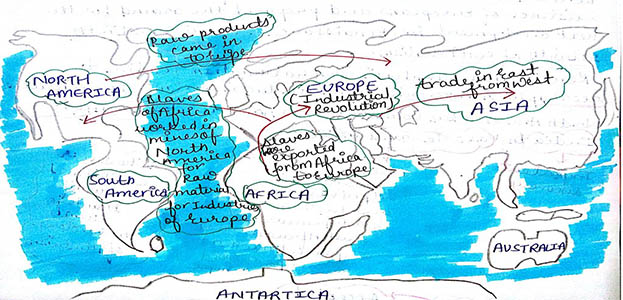 Raw products
came in
to Europe
NORTH
AMERICA
EUROPE
(Industrial
Revolution)
trade in East
from West
ASIA
Slaves
of Africa
worked in
mines of
North
America
for
Raw
material
for Industries
of Europe
Slaves
are
exported
from Africa
to Europe
South
America
AFRICA
AUSTRALIA
ANTARTICA